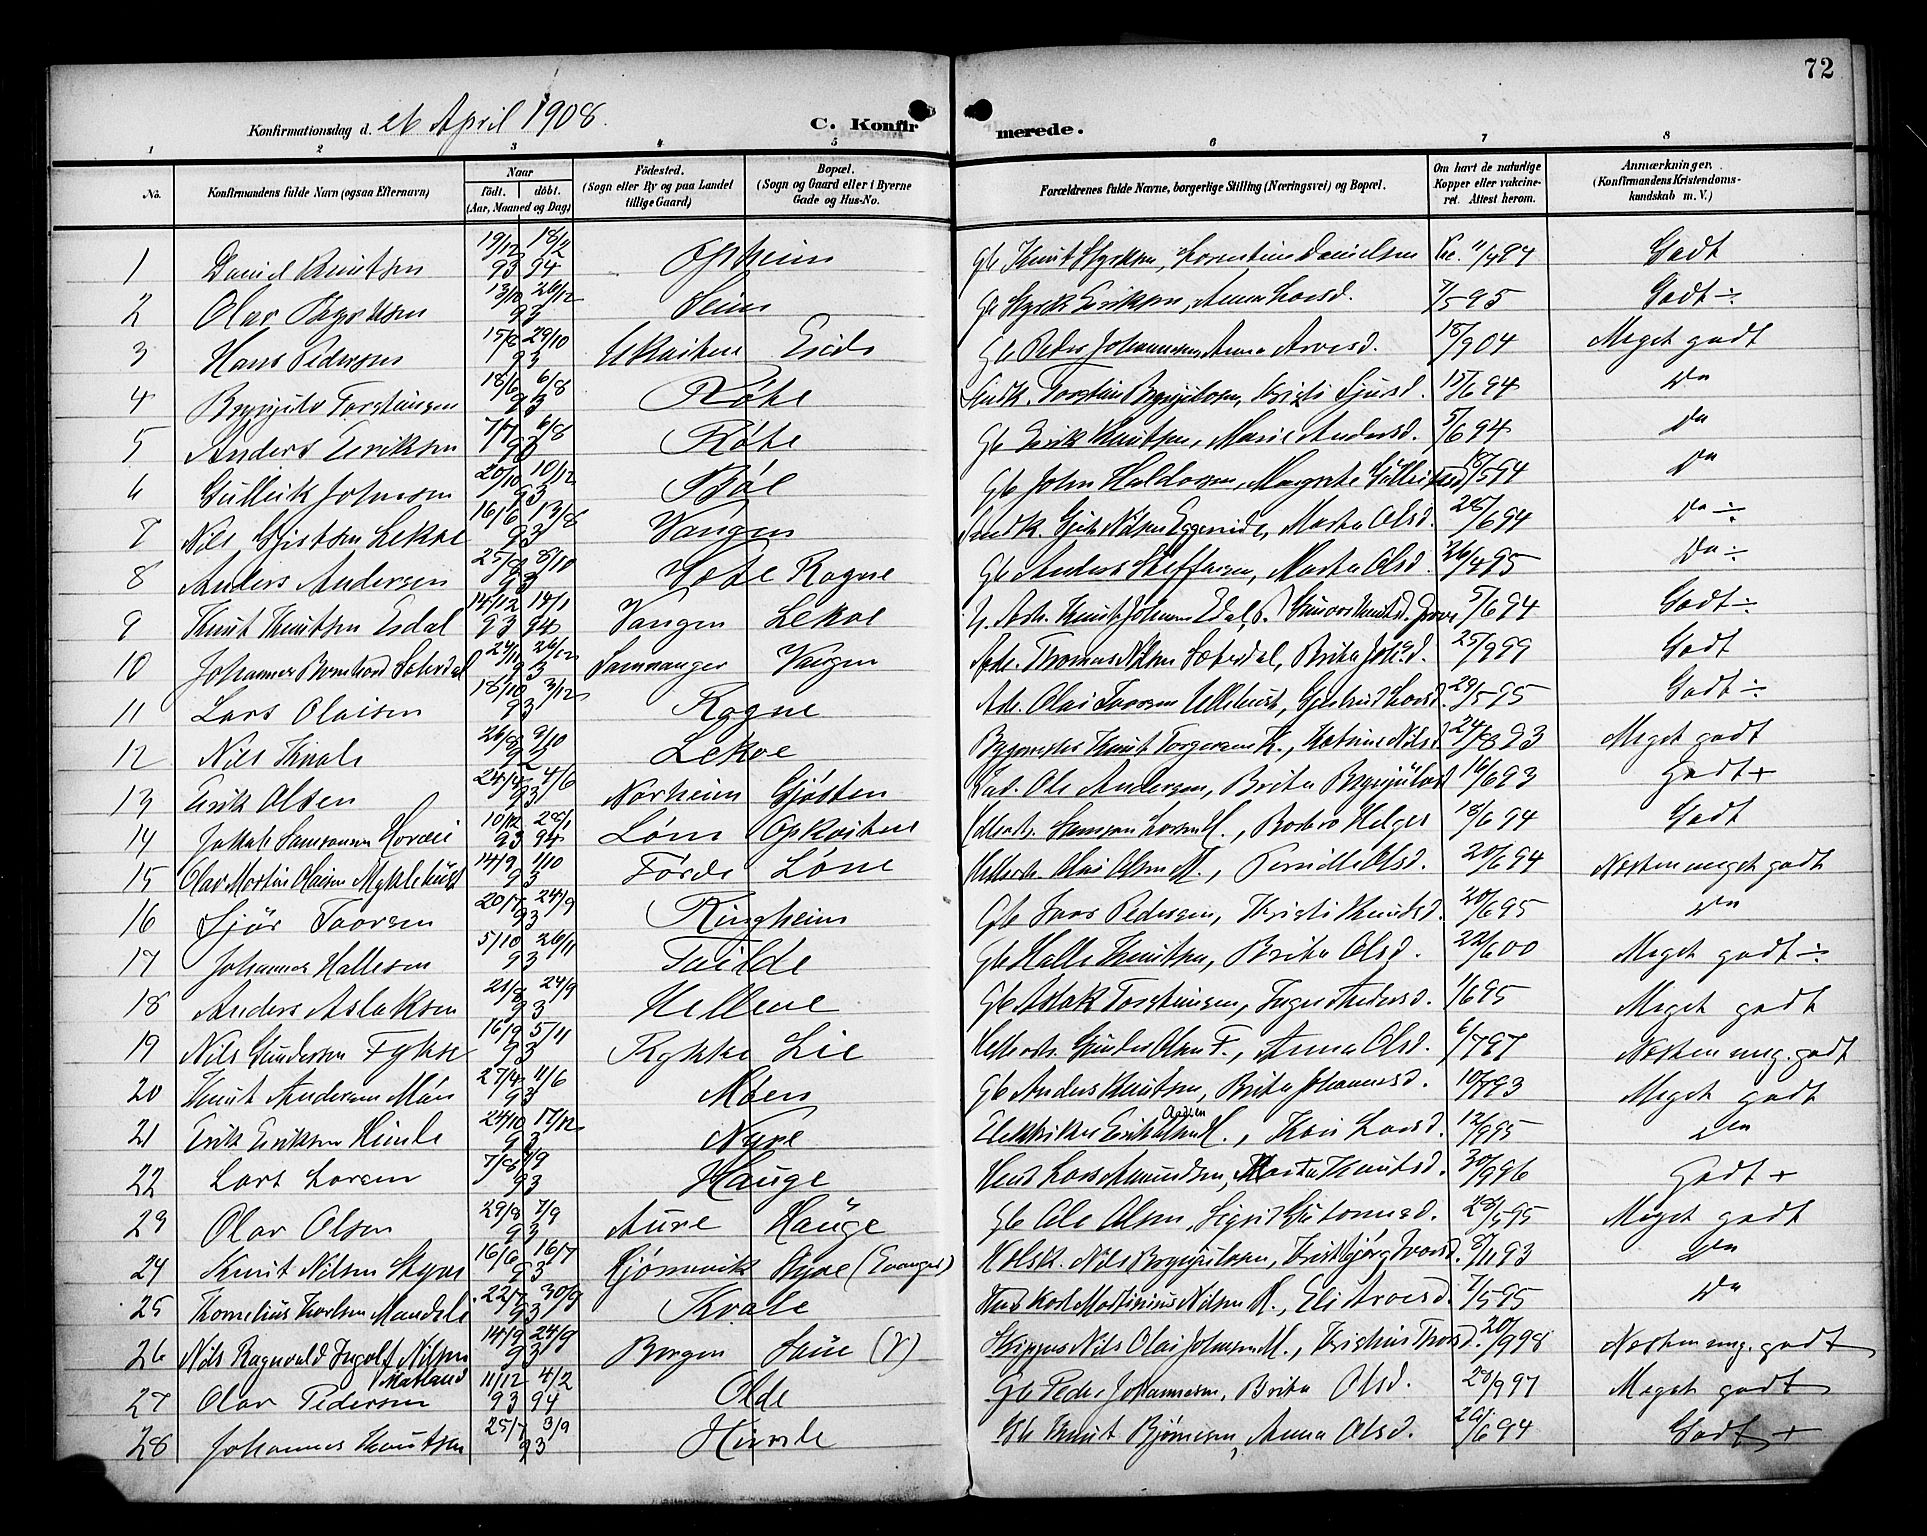 72
Konfirmationsdag d. 26 April 1908. C. Konfirmerede.
1 2 3 4 5 6 7 8
No. Konfirmandens fulde Navn (ogsaa Efternavn) Naar födt. döbt. (Aar, Maaned og Dag) Födested. (Sogn eller By og paa Landet tillige Gaard) Bopæl. (Sogn og Gaard eller i Byerne Gade og Hus-No. Forældrenes fulde Navne, borgerlige Stilling (Næringsvei) og Bopæl. Om havt de naturlige Kopper eller vakcineret. Attest herom. Anmærkninger. (Konfirmandens Kristendomskundskab m. V.)
1 David Knutsen 19/12 93 18/2 94 Opheim Gb Knut Styrksen, Lorentine Danielsen 11/4 94 Godt
2 Olav Styrksen 13/10 26/12 93 Seim Gb Styrk Eriksen, Anna Larsd. 7/5 95 Godt ÷
3 Hans Pedersen 15/8 29/10 93 Gb Peder Johannesen, Anna Arvesd. 18/9 04 Meget godt
4 Brynjulv Torsteinsen 18/6 6/8 93 Røte Torstein Brynjulvsen, Kristi Sjursd. 15/6 94 Do
5 Anders Eriksen 7/7 6/8 93 Røte Gb Erik Knutsen, Marie Andersd. 5/6 94 Do
6 Gulleik Johnsen 20/10 10/12 93 Bøe Gb John Haldorsen, Margrete Do
7 Nils Gjertsen Lekve 16/6 13/8 93 Vangen Nilsen Marta Olsd. 28/6 94 Do ÷
8 Anders Andersen 25/8 8/10 93 Rogne Gb Anders Steffensen, Marta Olsd. 26/4 95 Do ÷
9 Knut Knutsen Esdal 14/12 93 14/1 94 Vangen Lekve 5/6 94 Godt ÷
10 Johannes Bernhard Sæterdal 24/11 26/12 93 Samnanger Vangen Arb. Thomas Nilsen Sæterdal, Brita Joh.d. 25/9 99 Godt
11 Lars Olaisen 18/10 3/12 93 Rogne Arb. Olai Ivarsen Gjertrud Larsd. 29/5 95 Godt ÷
12 Nils Kvale 26/8 9/10 92 Lekve Bygmester Knut Torgersen K., Katrine Nilsd. 24/8 93 Meget godt
13 Erik Olsen 24/4 4/6 93 Norheim Gjøsten Ole Andersen, Brita Brynjulvsd. 16/6 93 Godt +
14 Jakob Samsonsen 10/12 93 28/1 94 Løne Opkvitne Samson Larsen H., Barbro Helges 18/6 94 Godt
15 Olav Martin Olaisen Myklebust 14/9 1/10 93 Førde Løne Olai Olsen M., Pernille Olsd. 20/6 94 Næsten meget godt
16 Sjur Ivarsen 20/7 24/9 93 Ringheim Gb Ivar Pedersen, Kristi Knudsd. 20/6 95 Do
17 Johannes Hallesen 5/10 26/11 93 Tvilde Gb Halle Knutsen, Brita Olsd. 22/6 00 Meget godt ÷
18 Anders Aslaksen 21/8 24/9 93 Helleve Gb Aslak Torsteinsen, Inger Andersd. 1/6 95 Meget godt
19 Nils Gundersen Fykse 16/9 5/11 93 Rykke Lie Gunder Olsen F., Anna Olsd. 6/7 97 Næsten meg. godt
20 Knut Andersen Møn 27/4 11/6 93 Møen Gb Anders Knutsen, Brita Johannesd. 10/7 93 Meget godt
21 Erik Eriksen Himle 24/10 17/12 93 Nyre Elektriker Erik H., Kari Larsd. 12/9 95 Do
22 Lars Larsen 7/8 93 Hauge Lars Amundsen, Marta Knutsd. 30/9 96 Godt +
23 Olav Olsen 29/8 7/9 93 Aure Hauge Gb Ole Olsen, Sigrid Guttormsd. 28/5 95 Meget godt
24 Knut Nilsen Styve 16/6 16/7 93 (Evanger) Nils Brynjulvsen, Ivarsd. 8/11 93 Do
25 Kornelius Karlsen 22/7 30/9 93 Kvale Karl Martinius Nilsen M., Eli Arvesd. 7/5 95 Do
26 Nils Ragnvald Ingolf Nilsen Matland 14/9 24/9 93 Bergen Saue (V) Skipper Nils Olai Johnsen M., 20/9 98 Næsten mg. godt
27 Olav Pedersen 11/12 93 4/2 94 Olde Gb Peder Johannesen, Brita Olsd. 20/9 97 Meget godt
28 Johannes Knutsen 25/7 3/9 93 Himle Gb Knut Bjørnesen, Anna Olsd. 20/6 94 Godt +